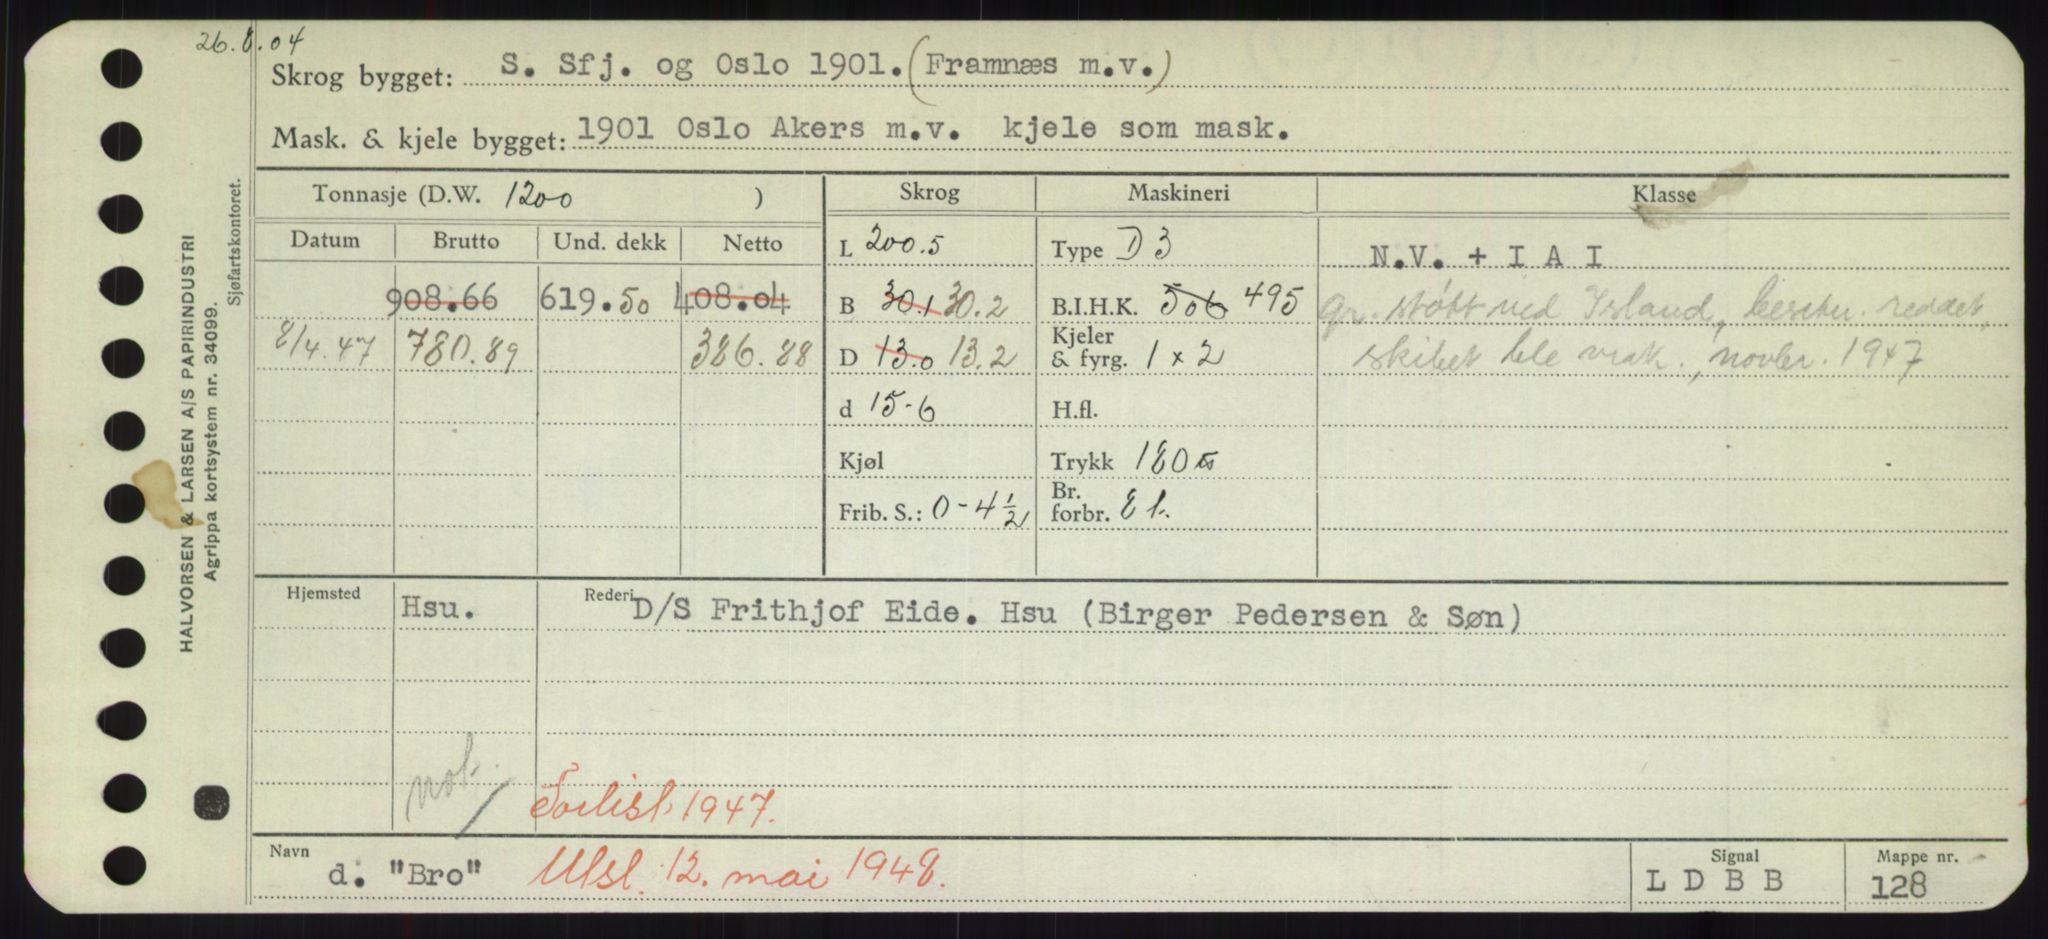 26.8.04
Skrog bygget: S. Sfj. og Oslo 1901. (Framnæs m.v.)
Mask. & kjele bygget: 1901 Oslo Akers m.v. kjele som mask.
Tonnasje (D.W. 1200 ) Skrog Maskineri Klasse
Datum Brutto Und. dekk Netto L 200.5 Type D 3 N.V. + I A I
908.66 619.50 408.04 B 30.1 30.2 B.I.H.K. 506 495 gr. støtt ved Island, besetn. reddet,
8/4.47 780.89 386.88 D 13.0 13.2 Kjeler & fyrg. 1 x 2 skibet ble vrak., novbr. 1947
d 15-6 H.fl.
Kjøl Trykk 180 lb
Frib. S.: 0-4 1/2 Br. forbr. 8 t.
Hjemsted Hsu. Rederi D/S Frithjof Eide. Hsu (Birger Pedersen & Søn)
not. Forlist 1947.
Navn d. "Bro" Utsl. 12. mai 1948. Signal L D B B Mappe nr. 128
HALVORSEN & LARSEN A/S PAPIRINDUSTRI
Agrippa kortsystem nr. 34099.
Sjøfartskontoret.